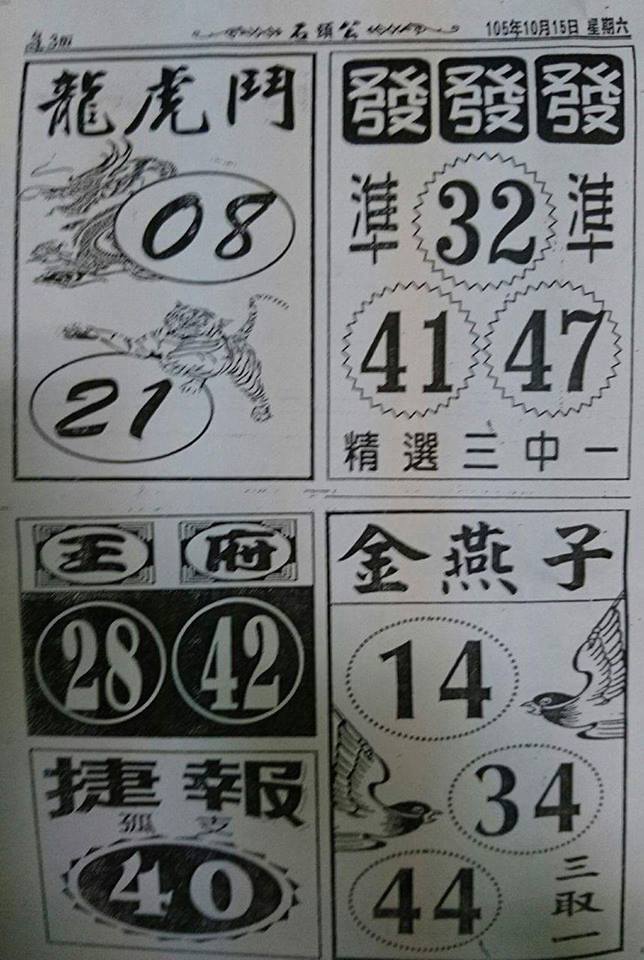 石頭公
105年10月15日 星期六
龍虎鬥
08
21
發發發
準 32 準
41 47
精選三中一
王府
28 42
捷報
孤支
40
金燕子
14
34
44
三取一